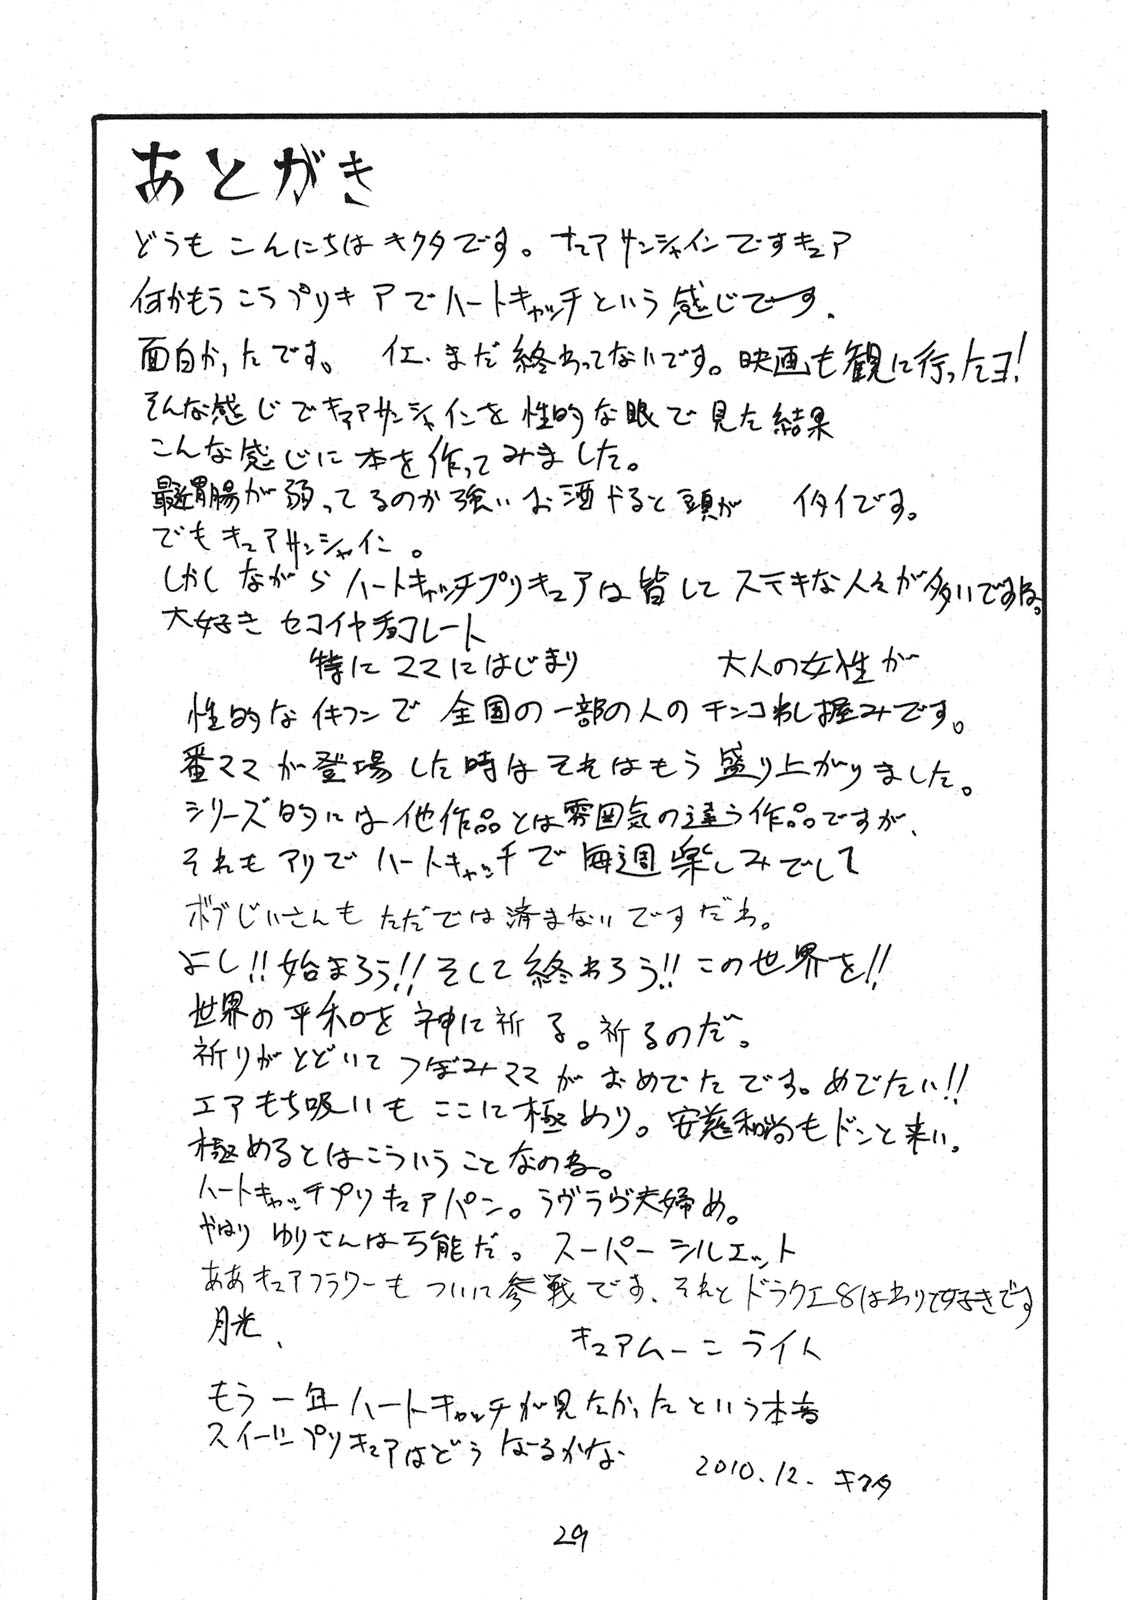 あとがき
どうも こんにちは キクタです。 キュアサンシャインですキュア
何かもう こう プリキュアで ハートキャッチ という 感じです.
面白かったです。 イエ、まだ 終わってないです。映画も観に行ったヨ!
そんな感じで キュアサンシャインを 性的な眼で 見た結果
こんな感じに 本を作ってみました。
最近胃腸が弱ってるのか 強いお酒やると 頭が イタイです。
でも キュアサンシャイン。
しかしながら ハートキャッチプリキュアは 皆して ステキな人々が多いですね。
大好き セコイヤチョコレート
特に ママにはじまり 大人の女性が
性的な で 全国の一部の人の チンコわし掴みです。
番ママが 登場した時は それはもう 盛り上がりました。
シリーズ的には 他作品とは 雰囲気の違う作品ですが、
それも アリで ハートキャッチで 毎週楽しみでして
ボブじいさんも ただでは 済まないですだわ。
よし!!始まろう!! そして 終わろう!! この世界を!!
世界の 平和を 神に祈る。祈るのだ。
祈りがとどいて つぼみママが おめでたです。めでたい!!
エアもち吸いも ここに極めり。安慈和尚もドンと来い。
極めるとは こういう ことなのね。
ハートキャッチプリキュアパン。ラヴラヴ夫婦め。
やはり ゆりさんは 万能だ。 スーパーシルエット
ああ キュアフラワーも ついに 参戦です、それと ドラクエ8はわりと好きです
月光、 キュアムーンライト
もう一年 ハートキャッチが見たかった という本音
スイートプリキュアはどう なるかな
2010.12. キクタ
29